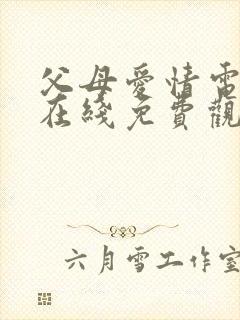 父母愛情電
在綫免費觀
六月雪工作室